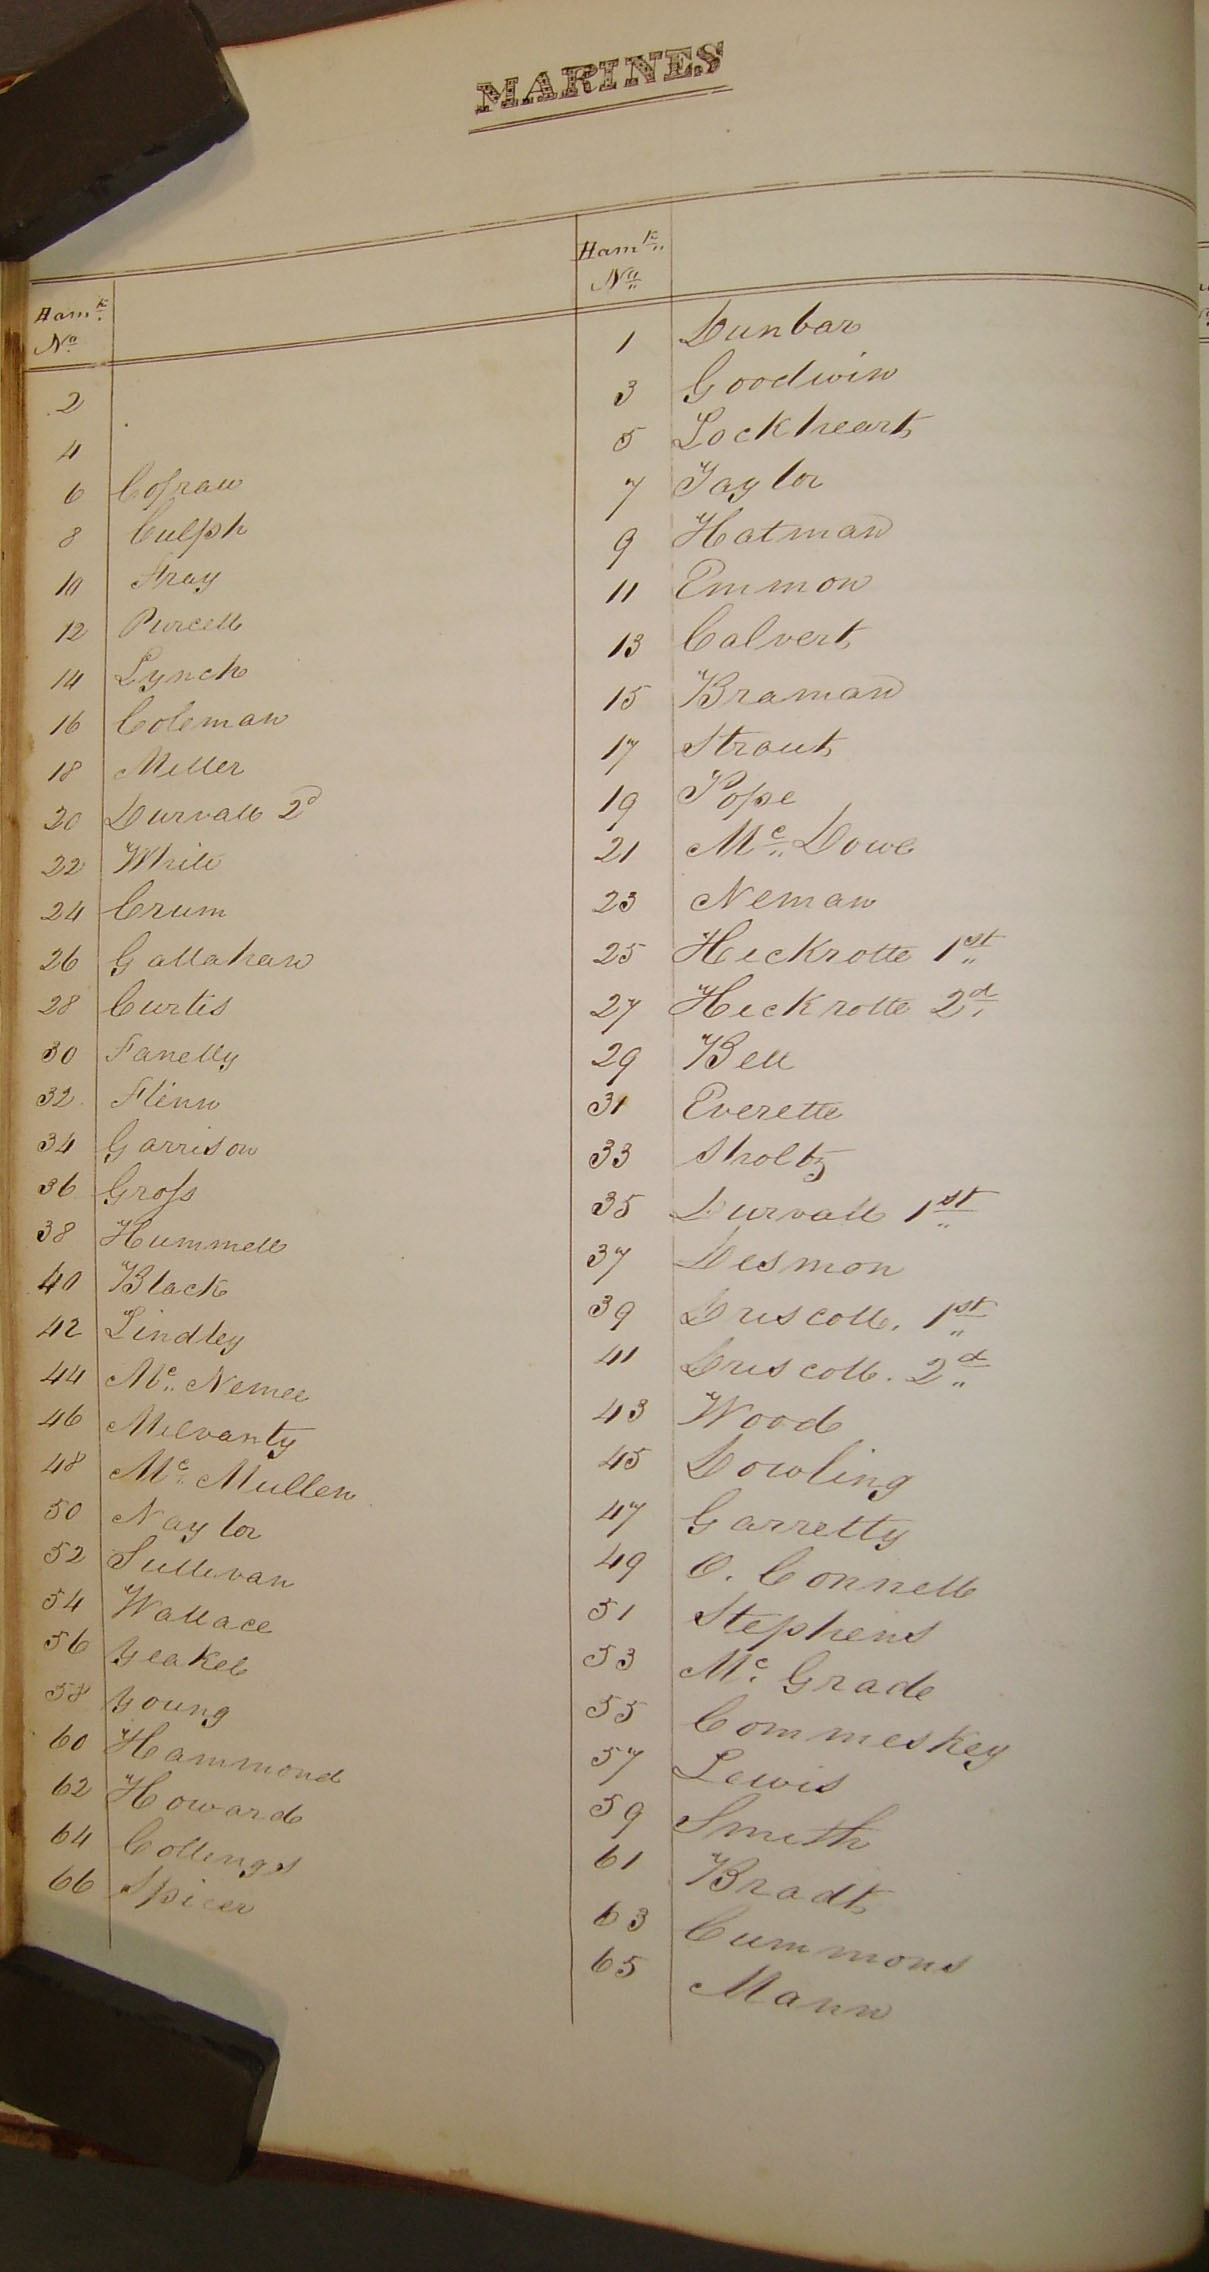 MARINES
Hamk.
No.
2
4
6 Cossaw
8 Culph
10 Fray
12 Purcell
14 Lynch
16 Coleman
18 Miller
20 Durvall 2d
22 White
24 Crum
26 Gallahan
28 Curtis
30 Fanelly
32 Flinn
34 Garrison
36 Gross
38 Hummell
40 Black
42 Lindley
44 Mc. Nemee
46 Milvanty
48 Mc. Mullen
50 Naylor
52 Sullivan
54 Wallace
56 Yeakel
58 Young
60 Hammond
62 Howard
64 Collings
66 Spicer
Hamk.
No.
1 Dunbar
3 Goodwin
5 Lockheart
7 Taylor
9 Hatman
11 Emmon
13 Calvert
15 Braman
17 Strout
19 Pope
21 Mc. Dowe
23 Neman
25 Heckrotte 1st
27 Heckrotte 2d
29 Bell
31 Everette
33 Sholtz
35 Durvall 1st
37 Desmon
39 Driscoll. 1st
41 Driscoll. 2d
43 Wood
45 Dowling
47 Garretty
49 O. Connell
51 Stephens
53 Mc. Grade
55 Commeskey
57 Lewis
59 Smith
61 Bradt
63 Cummons
65 Mann